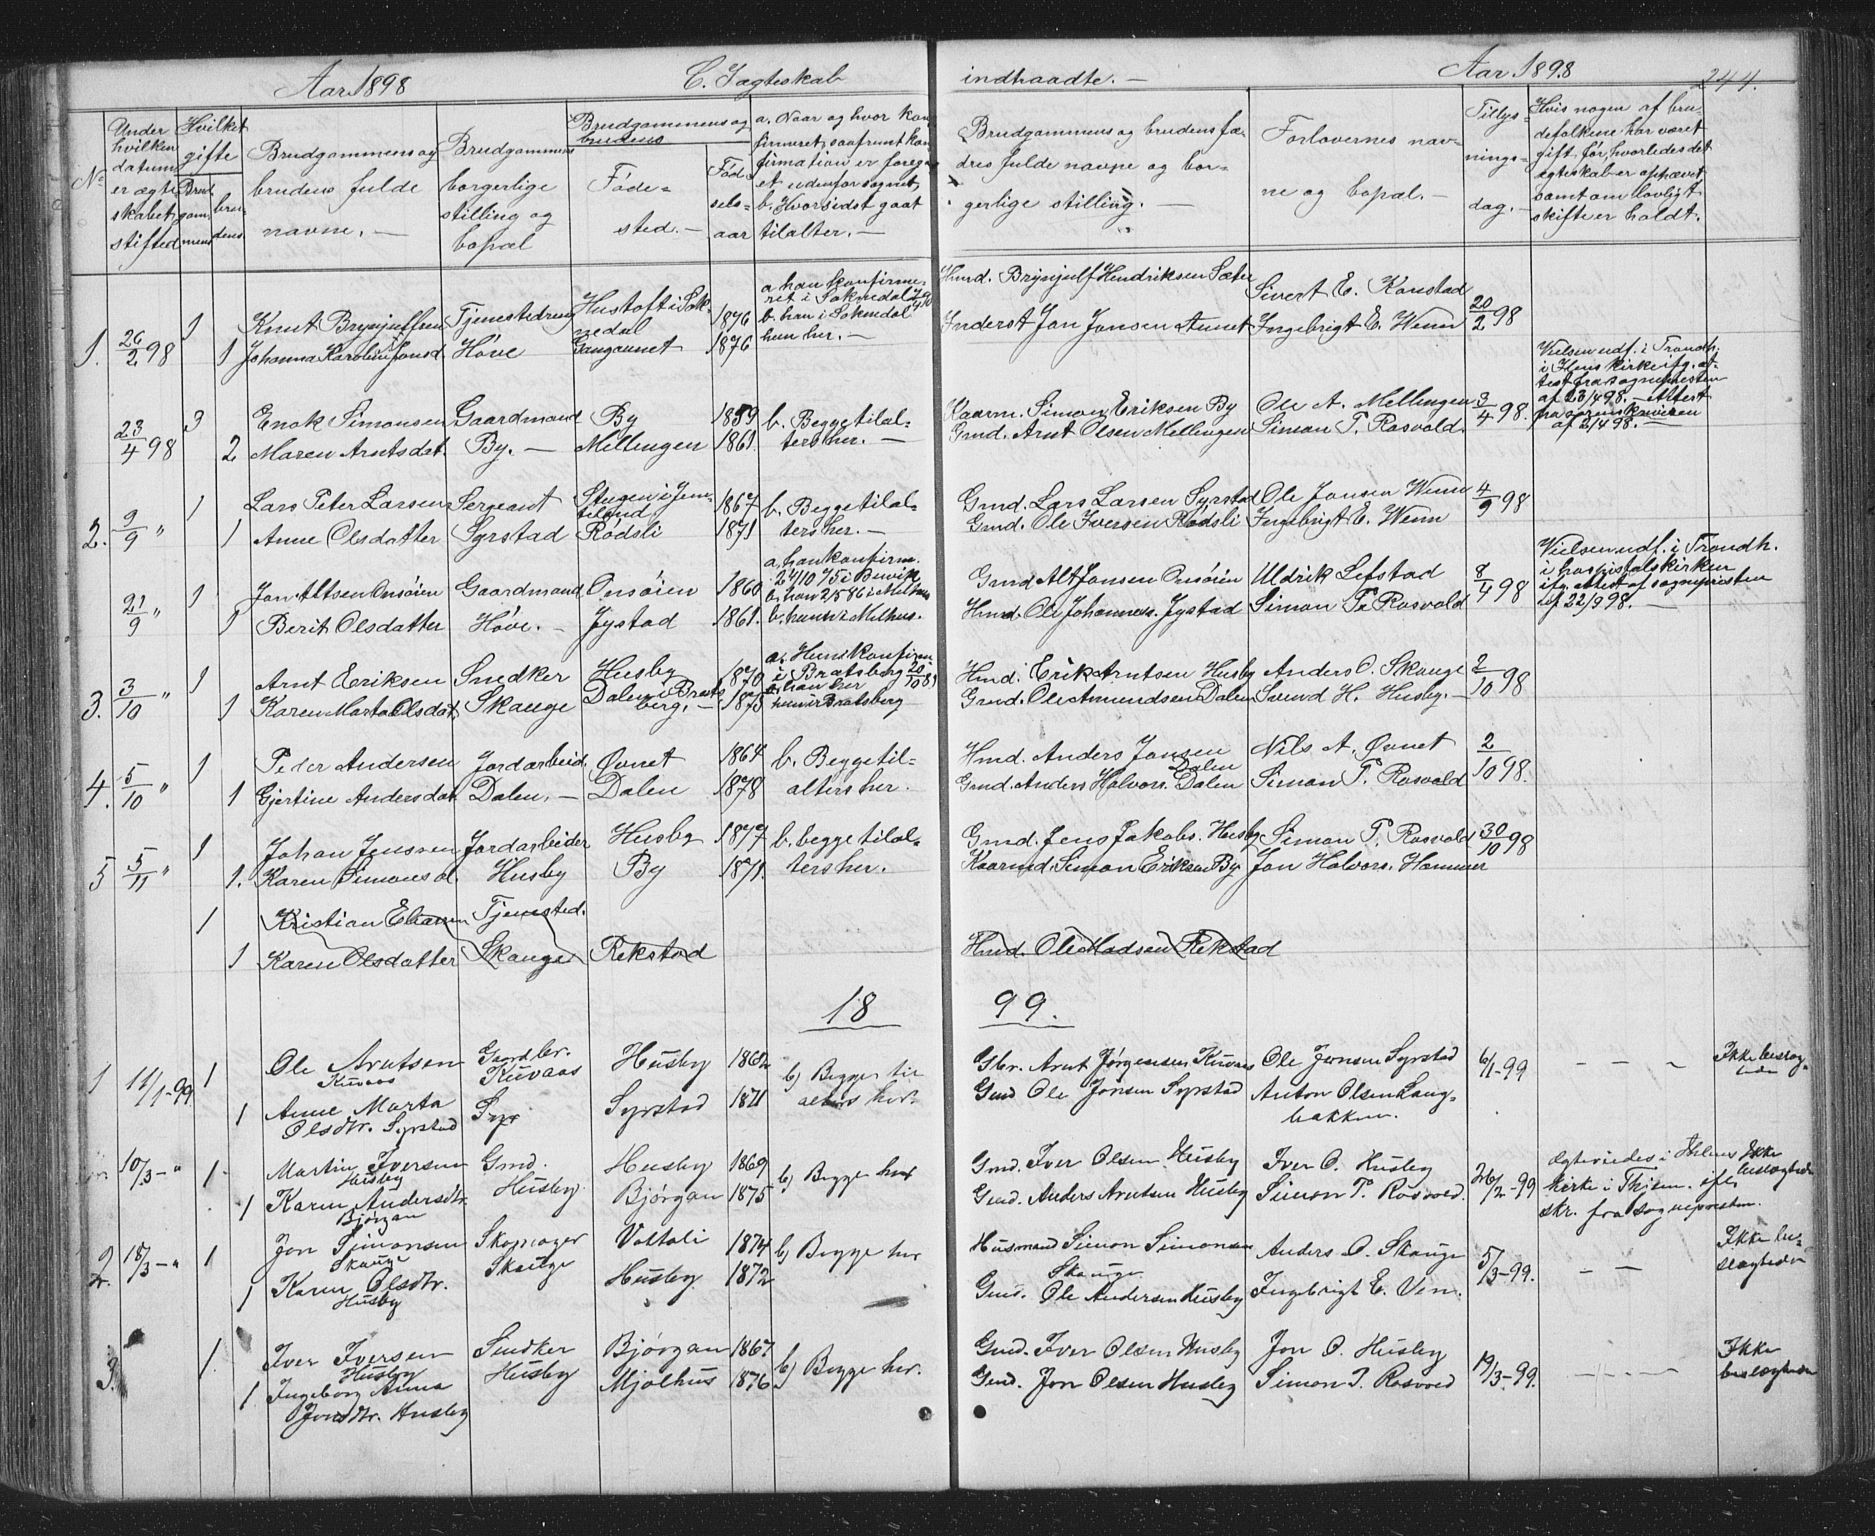 Aar 1898 C. Ægteskab indtraadte. — Aar 1898 244.
No
Under hvilken datum er ægteskabet stiftet
Hvilket gifte
Brudgommens
brudens.
Brudgommens og brudens fulde navne. —
Brudgommens borgerlige stilling og bopæl
Brudgommens og brudens
Fødested. —
Fødselsaar
a. Naar og hvor konfirmeret, saafremt konfirmation er foregaaet udenfor sognet,
b. Hvor sidst gaat tilalter. —
Brudgommens og brudens fædres fulde navne og borgerlige stilling. —
Forlovernes navne og bopæl. —
Tillysningsdag. —
Hvis nogen af brudefolkene har været gift før, hvorledes det ægteskab er ophævet samt om lovligt skifte er holdt.
1. 26/2 98 1 Knut Brynjulfsen Tjenestedreng Hustoft i Soknedal 1876 a. han konfirmeret i Soknedal b. han i Soknedal hun her. — Hmd. Brynjulf Hendriksen Sæter Sivert E. Kanstad 20/2 98
1 Johanna Karoline Jonsd. Hove Gangaunet 1876 Inderst Jon Jonsen Aunet Ingebrigt E. Wenn
23/4 98 3 Enok Simonsen Gaardmand By 1859 b. Begge tilalters her. — Kaarm. Simon Eriksen By Ole A. Mellingen 3/4 98. Vielsen udf. i Trondh. i Ilens kirke ifg. attest fra sognepresten af 23/4 98. — Attest fra sorenskriveren af 2/4 98. —
2. Maren Arntsdat. By. — Millingen 1861. Gmd. Arnt Olsen Mellingen Simon T. Rosvold.
2. 9/9 " 1 Lars Peter Larsen Sergeant Stugen i Jemteland 1867 b. Begge tilalters her. — Gmd. Lars Larsen Syrstad Ole Jonsen Wenn 4/9 98
1 Anne Olsdatter Syrstad Rødsli 1871 Gmd. Ole Iversen Rødsli Ingebrigt E. Wenn
21/9 " 1 Jon Altsen Onsøien Gaardmand Onsøien 1860 a. han konfirm. 24/10 75 i Buvik b. han 2/5 86 i Melhus b. hun i Melhus. Gmd Alt Jonsen Onsøien Uldrik Lefstad 8/4 98 Vielsen udf. i Trondh. i hospitalskirken ifg. attest af sognepresten af 22/9 98. —
1 Berit Olsdatter Hove. — Jystad 1861. Hmd. Ole Johanness. Jystad Simon T. Rosvold
3. 3/10 " 1 Arnt Eriksen Snedker Husby 1870 a. Hun konfirm. i Bratsberg b. han her hun i Bratsberg Hmd. Erik Arntsen Husby Anders O. Skauge 2/10 98
1 Karen Marta Olsdat. Skauge Dalen i Bratsberg. — 1875 Gmd. Ole Amundsen Dalen Svend H. Husby. —
4. 5/10 " 1 Peder Andersen Jordarbeid. Øvnet 1864 b. Begge tilalters her. Hmd. Anders Jonsen Nils A. Øvnet 2/10 98.
1 Gjertine Andersdat. Dalen. — Dalen 1878 Gmd. Anders Halvors. Dalen Simon T. Rosvold
5 5/11 " 1 Johan Jenssen Jordarbeider Husby 1877 b. begge tilalters her. Gmd. Jens Jakobs. Husby Simon T. Rosvold 30/10 98
1. Karen Simonsd. Husby By 1871. Kaarmd. Simon Eriksen By. Jon Halvors. Hammer
1 Kristian Tjenested.
1 Karen Olsdatter Skauge Rekstad Hmd. Ole Madsen Rekstad
18 99.
1 1 Ole Arntsen Kuvaas Gaardbr. Kuvaas Husby b) Begge til alters her. Gbr. Arnt Jørgensen Kuvaas Ole Jonsen Syrstad 6/1-99 — — — Ikke beslægtede
1 Anne Marta Olsdtr. Syrstad Syr Syrstad 1871 Gmd Ole Jonsen Syrstad Anton Olsen Langbakken.
10/3-" 1 Martin Iversen Husby Gmd. Husby. Husby 1869 b) Begge her Gmd. Iver Olsen Husby Iver O. Husby 26/2-99 Ægteviedes i Ihlens kirke i Thjem. ifl. skr. fra sognepresten. Ikke beslægtede
1 Karen Andersdtr. Bjørgan Bjørgan 1875 Gmd. Anders Arntsen Husby Simon T. Rosvold.
2 18/3-" 1 Jon Simonsen Skauge Skomager Skauge Voltali 1874 b) Begge her Husmand Simon Simonsen Skauge Anders O. Skauge 5/3-99. — — Ikke beslægtede
1 Karen Olsdtr. Husby Husby 1872 Gmd. Ole Andersen Husby Ingebrigt E. Ven.
3. 1. Iver Iversen Husby Snedker Husby Bjørgan 1867 b) Begge her. Gmd. Iver Olsen Husby Jon O. Husby 19/3-99. Ikke beslægtede
1. Ingeborg Anna Jonsdtr. Husby Mjølhus 1876 Gmd. Jon Olsen Husby Simon T. Rosvold